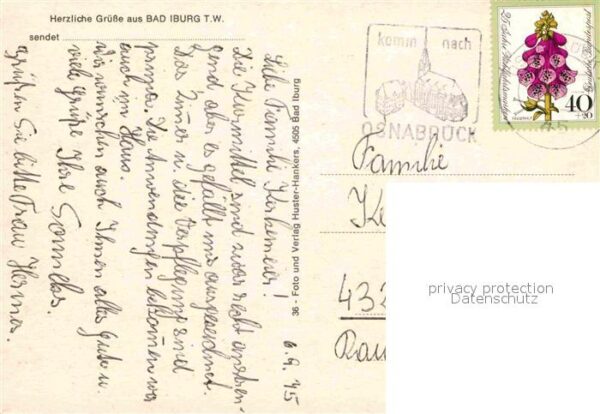 Herzliche Grüße aus BAD IBURG T.W.
sendet
6.9.75
Liebe Familie
Die Kurmittel sind zwar recht anstren-
gend, aber es gefällt mir ausgezeichnet.
Das Zimmer u. die Verpflegung sind
prima. Die Anwendungen bekommen wir
auch im Haus.
Wir wünschen auch Ihnen alles Gute u.
viele Grüße Ihre
Grüßen Sie bitte Frau
36 - Foto und Verlag 4505 Bad Iburg
komm nach
OSNABRÜCK
40
+20
Familie
Ke
432
Rau
privacy protection
Datenschutz